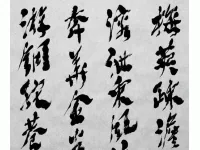 梅英疏澹
溶泄東風
年華金谷
游銅駝巷